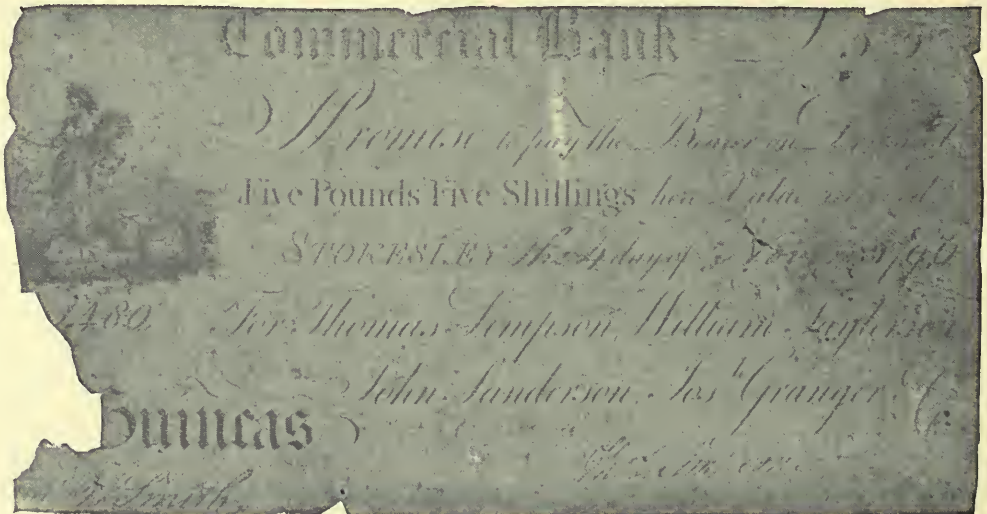 Commercial Bank
I Promise to pay the Bearer on Demand
Five Pounds Five Shillings here Value received
STOKESLEY the 24 day of
1489 For Thomas Simpson, William
John Sanderson, Josh Granger &
Guineas
Smith